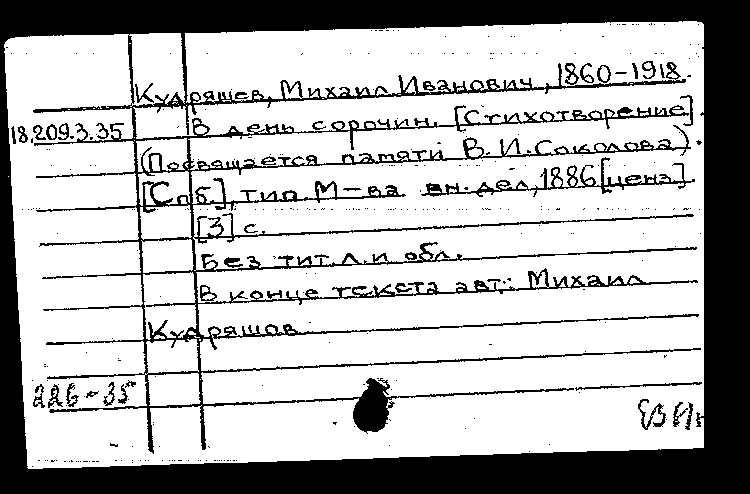 Кудряшев, Михаил Иванович, 1860-1918.
18.209.3.35 В день сорочин. [Стихотворение].
(Посвящается памяти В.И.Соколова).
[Спб.], тип. М-ва вн.дел, 1886 [ценз].
[3] с.
Без тит.л.и обл.
В конце текста авт.: Михаил
Кудряшов
226-35